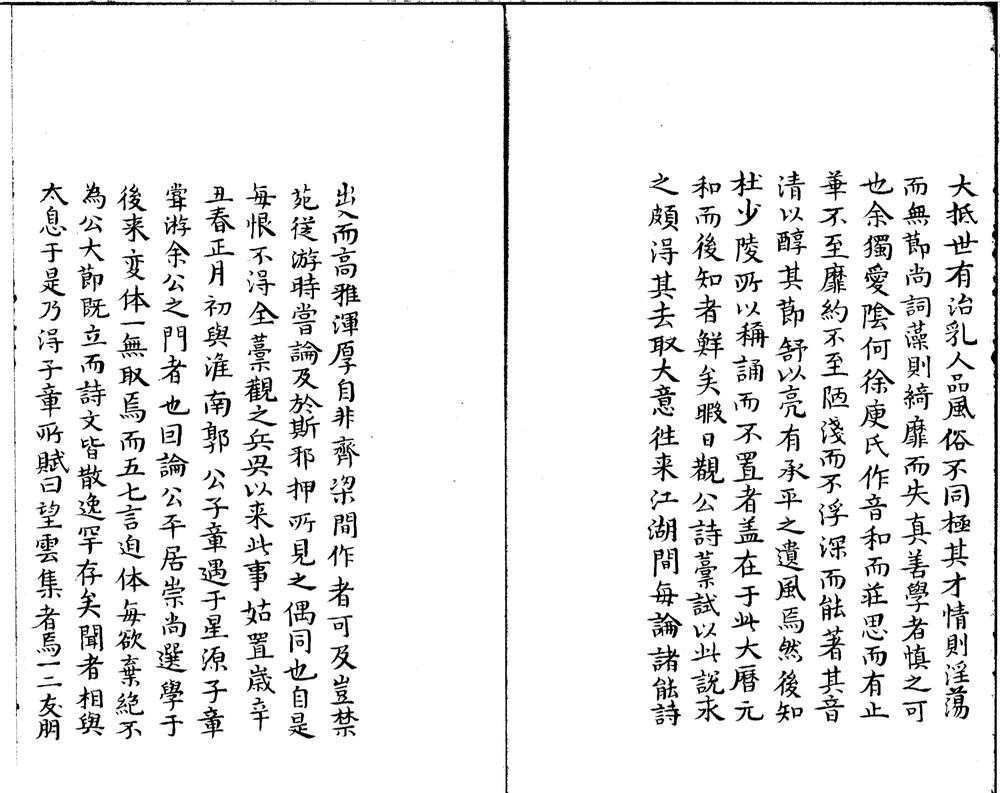 大抵世有治乱人品風俗不同極其才情則淫蕩
而無節尚詞藻則綺靡而失真善學者慎之可
也余獨愛陰何徐庾氏作音和而莊思而有止
華不至靡約不至陋淺而不浮深而能著其音
清以醇其節舒以亮有承平之遺風焉然後知
杜少陵所以稱誦而不置者盖在于此大曆元
和而後知者鮮矣暇日觀公詩藁試以此説求
之頗淂其去取大意徃来江湖間每論諸能詩
出入而高雅渾厚自非齊梁間作者可及豈禁
苑従游時嘗論及於斯邪抑所見之偶同也自是
每恨不淂全藁觀之兵興以来此事姑置歳辛
丑春正月初與淮南郭公子章遇于星源子章
甞游余公之門者也因論公平居崇尚選學于
後来变体一無取焉而五七言近体每欲棄絶不
為公大節既立而詩文皆散逸罕存矣聞者相與
太息于是乃淂子章所賦曰望雲集者焉一二友朋